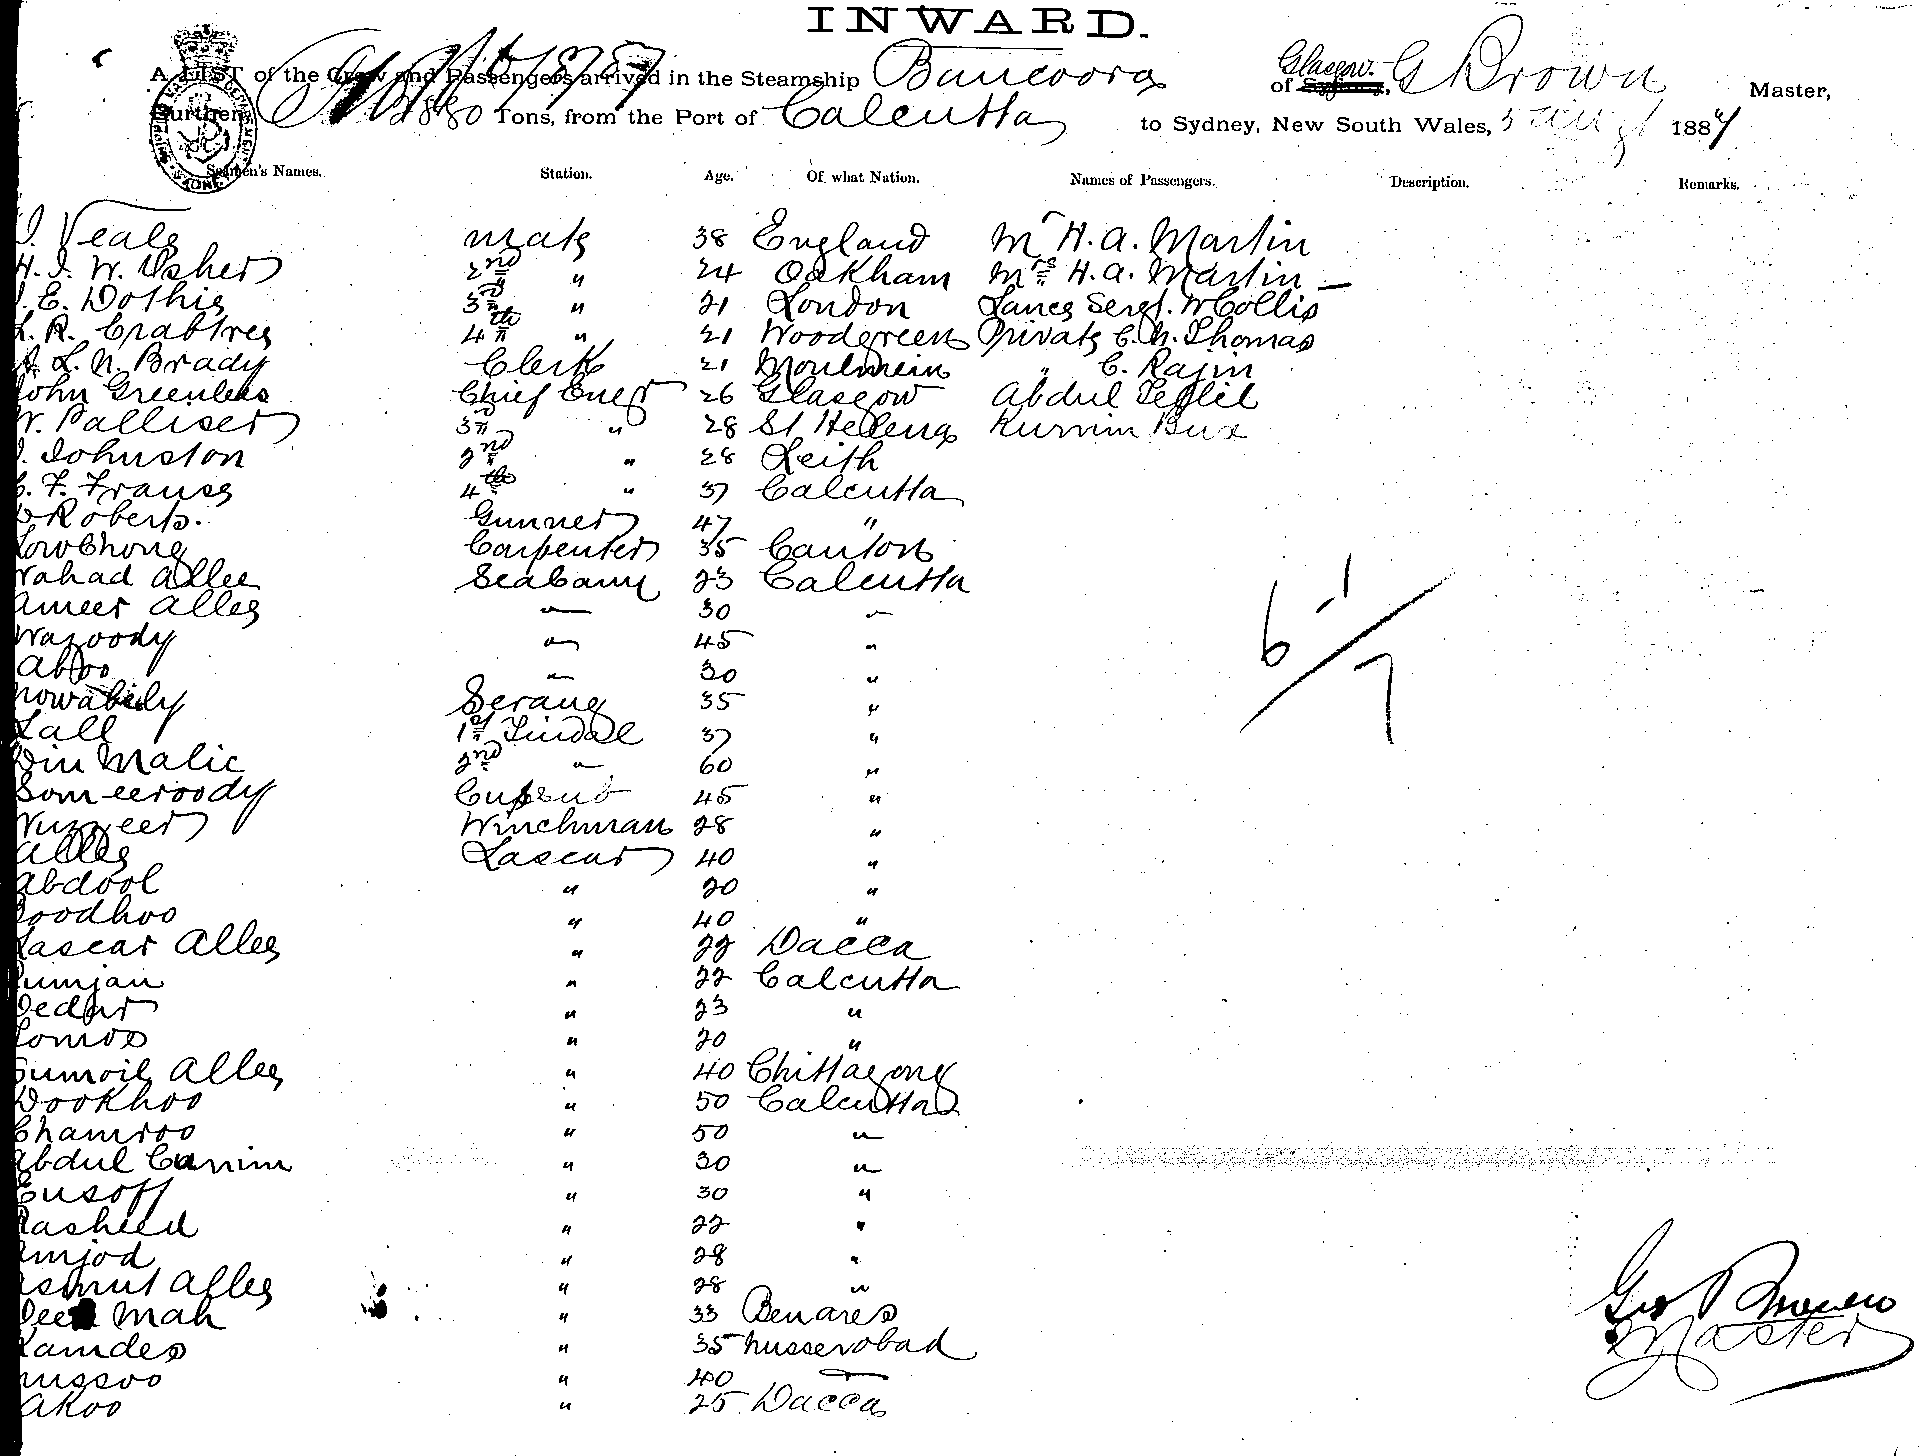 INWARD.
A LIST of the Crew and Passengers arrived in the Steamship Bancoora of Glasgow. Sydney, G Brown Master,
Burthen 1880 Tons, from the Port of Calcutta to Sydney, New South Wales, 5 1887
Seamen's Names. Station. Age. Of what Nation. Names of Passengers. Description. Remarks.
J. Veale Mate 38 England Mr H. A. Martin
H. J. W. Usher 2nd " 24 Oakham Mrs H. A. Martin —
J. E. Dothie 3rd " 21 London Lance Sergt. W Collis
L. R. Crabtree 4th " 21 Woodgreen Private C. N. Thomas
A. L. N. Brady Clerk 21 Moulmein " C. Rajin
John Greenlees Chief Engr 26 Glasgow Abdul
W. Palliser 3rd " 28 St Helena Kurrim Bux
J. Johnston 2nd " 28 Leith
C. F. Frause 4th " 37 Calcutta
D Roberts. Gunner 47 "
Low Chong Carpenter 35 Canton
Wahad Allee Seacunny 23 Calcutta
Ameer Allee " 30 "
Wazoody " 45 "
Aboo " 30 "
Serang 35 "
Lall 1st Tindal 37 "
Din Malic 2nd " 60 "
Someeroody Cussub 45 "
Wuzeer Winchman 28 "
Allee Lascar 40 "
Abdool " 20 "
Boodhoo " 40 "
Lascar Allee " 22 Dacca
Rumjan " 22 Calcutta
Dedar " 23 "
" 20 "
Allee " 40 Chittagong
Dookhoo " 50 Calcutta
Chamroo " 50 "
Abdul Currim " 30 "
Eusoff " 30 "
Rasheed " 22 "
Amjod " 28 "
Allee " 28 "
Mah " 33 Benares
Ramdeo " 35 Nusserobad
" 40 "
" 25 Dacca
6 - 1
7
Geo Brown
Master